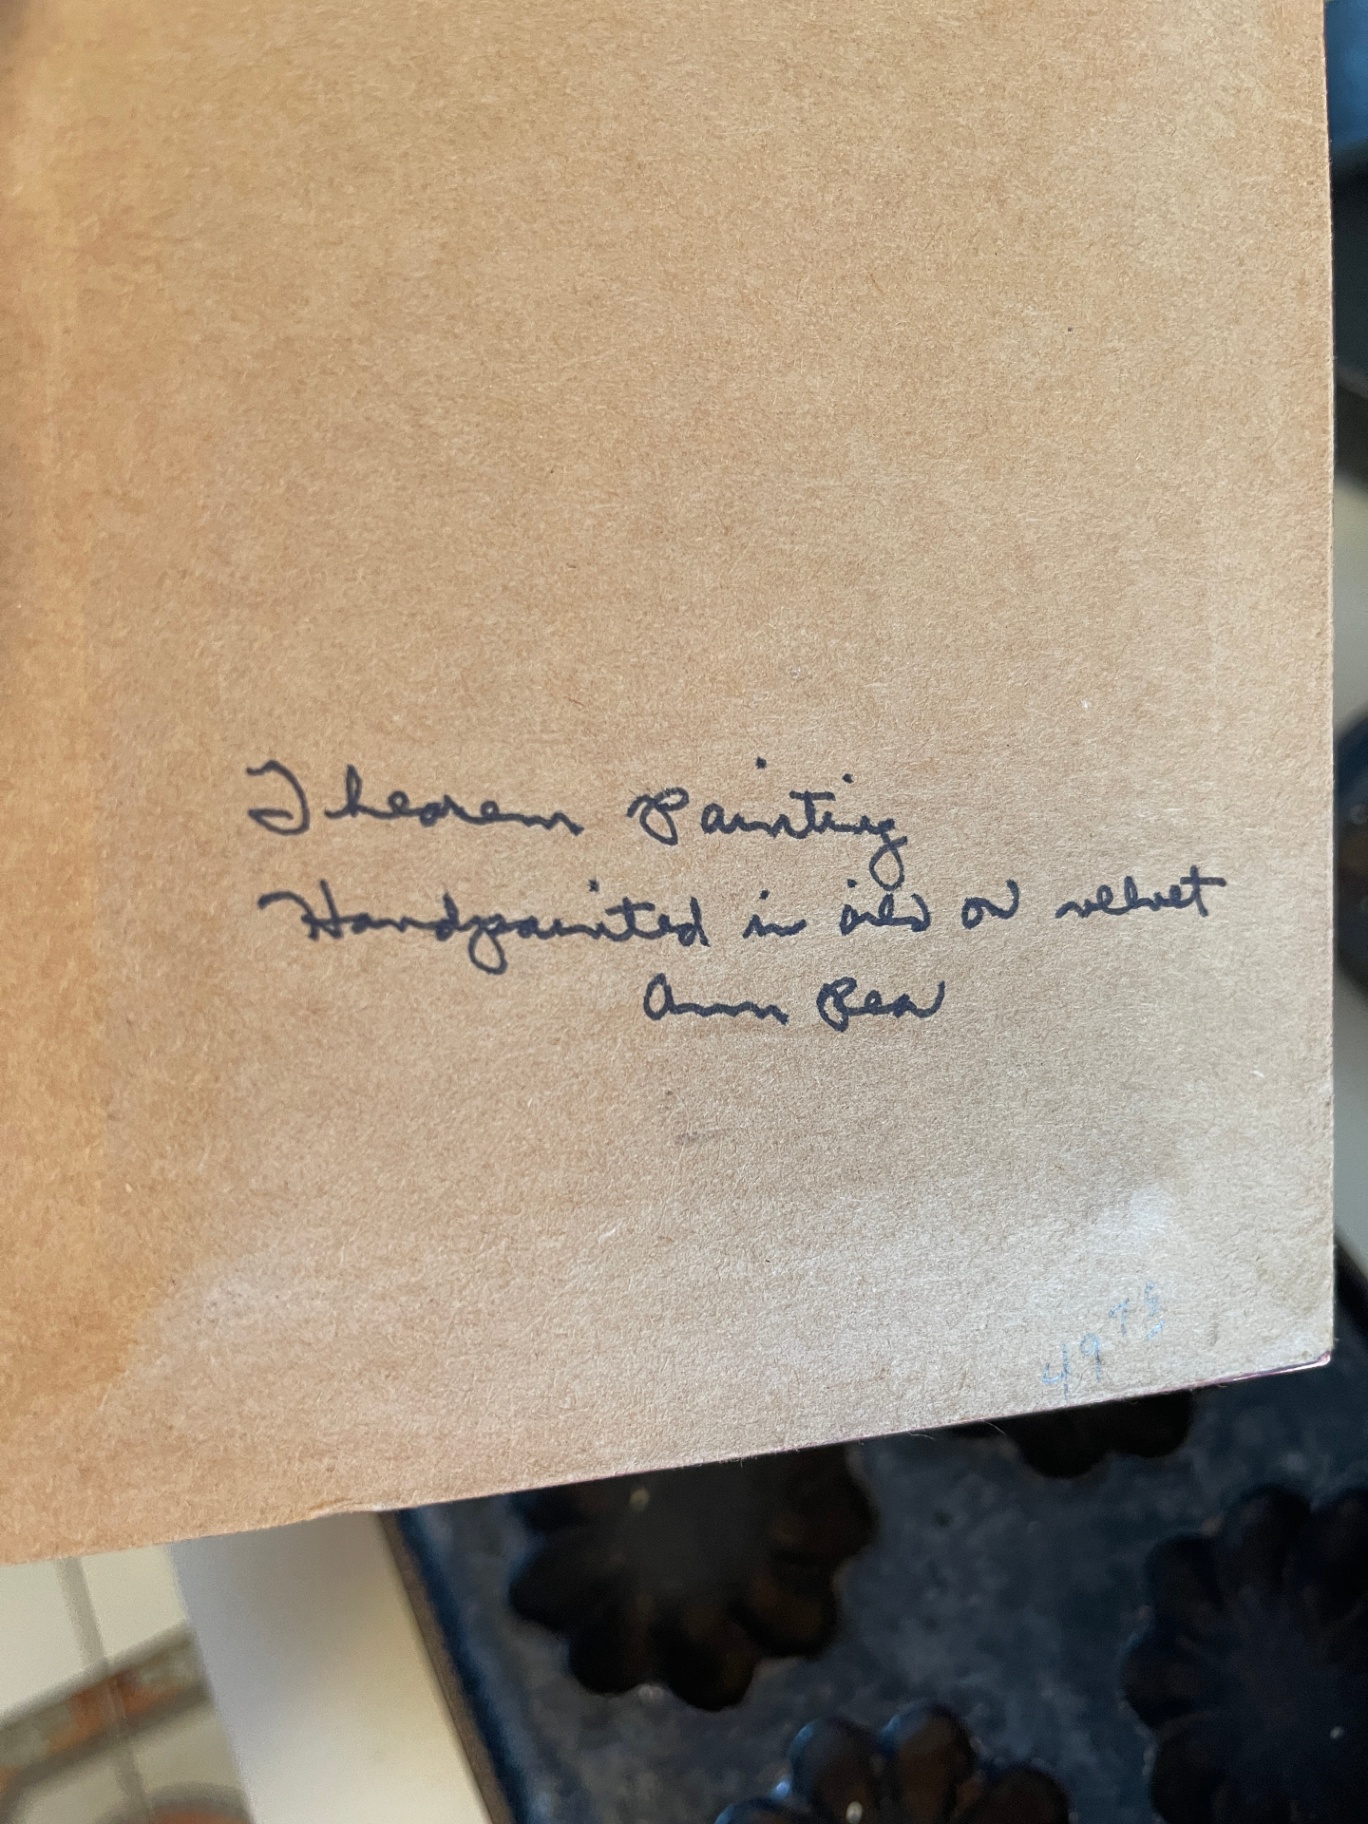 Theorem Painting
Handpainted in oils on velvet
Ann Rea